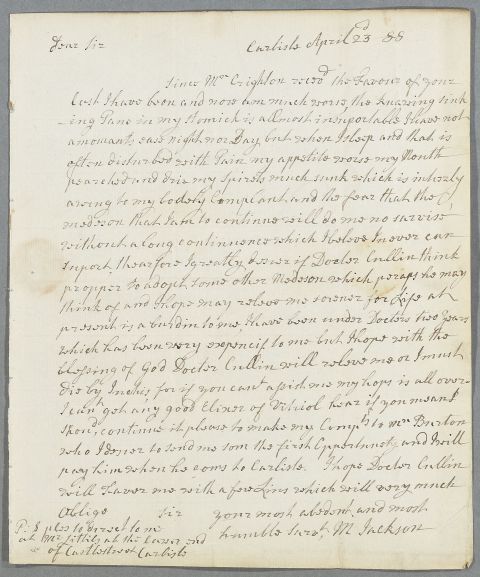 Dear Sir Carlisle April 23d 88
Since Mr Crighton recevd the favour of your
last I have been and now am much worse, the knawing sink
-ing Pane in my stomick is allmost insuportable I have not
amoments ease night nor Day, but when I sleep and that is
often disturbed with Pain my appetite worse my Mouth
pearched and drie my Spirets much sunk which is intierly
awing to my bodely Complant and the fear that the
medeson that I am to continue will do me no sarvise
without a long continuence which I beleve I never can
Suport thearfore I greatly desier if Docter Cullin think
propper to adopt some other Medeson which perhaps he may
think of and I hope may releve me sooner for Life at
present is a burdin to me, I have been under Docters two years
which has been very expencif to me but I hope with the
blessing of God Docter Cullin will releve me or I must
die by Inches for if you cant assist me my hops is all over
I cant get any good Elixer of Vitriol hear if you mean I
shoud continue it please to make my Compts to Mr Burton
who I desier to send me som the first Oppertunety and I will
pay him when he coms to Carlisle. I hope Docter Cullin
will faver me with a few Lins which will very much
Oblige Sir your most abedent and most
humble Sarvt M Jackson
P: S ples to direct to me
at Mr at the lower end
of Castlestreet Carlisle